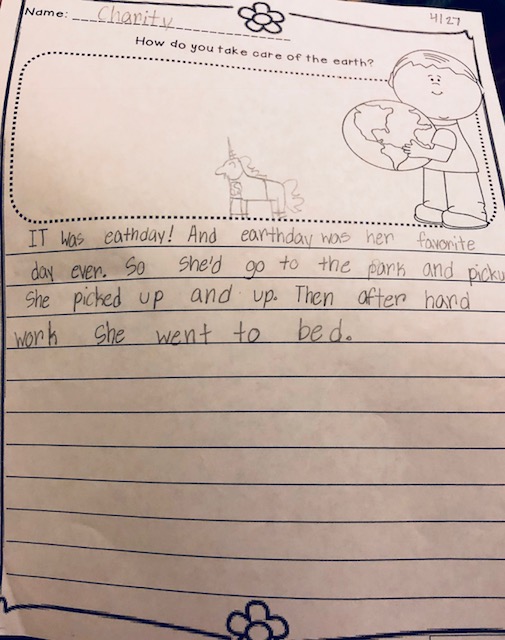 Name: Charity
4/27
How do you take care of the earth?
IT was eathday! And earthday was her favorite
day ever. So she'd go to the park and picku
She picked up and up. Then after hard
work she went to bed.